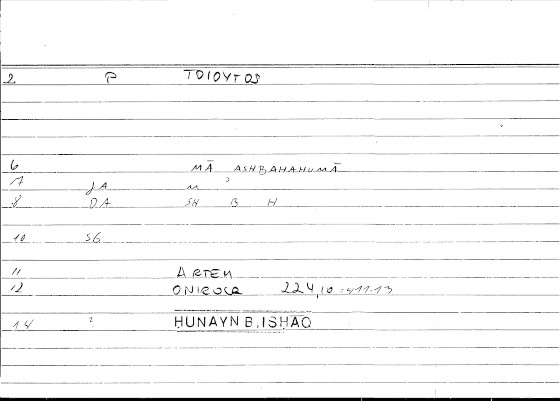 2 P TOIOYTOS
6 MĀ ASHBAHAHUMĀ
7 JA M '
8 DA SH B H
10 SG
11 ARTEM
12 ONIROCR 224,10 = 411.13
14 ? HUNAYN B. ISHAQ